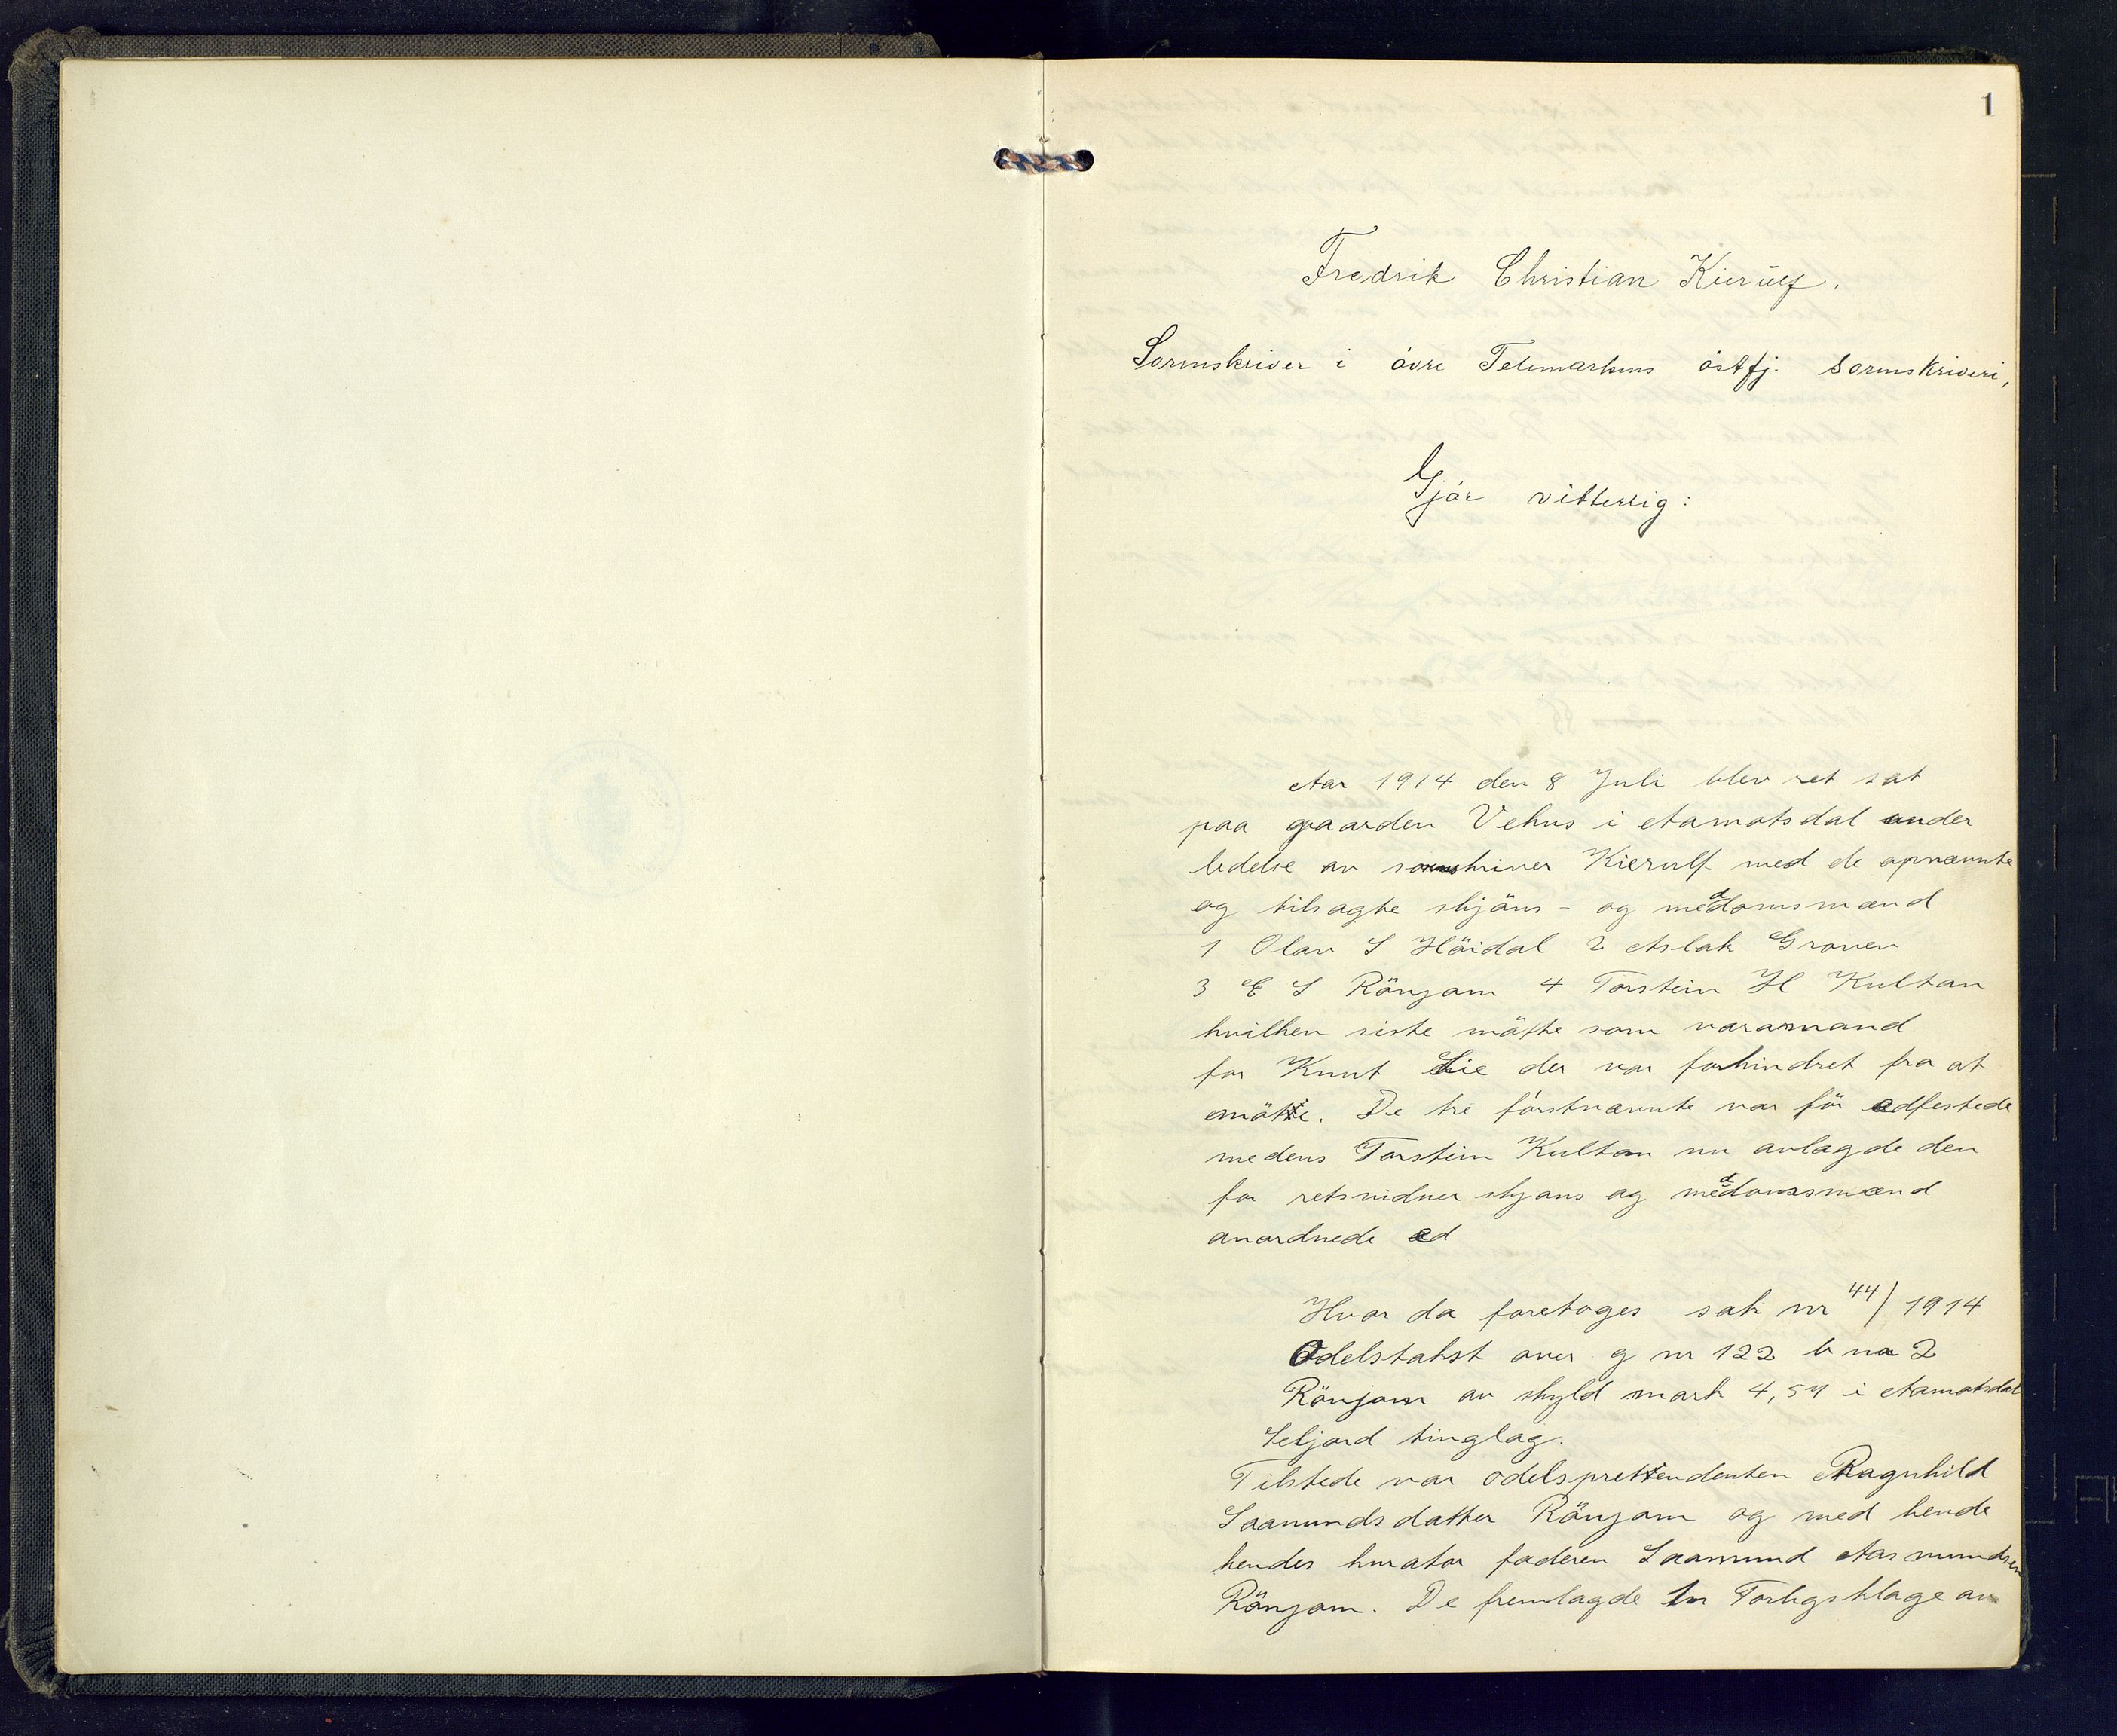 1
Fredrik Christian Kierulf.
Sorenskriver i övre Telemarkens östfj. Sorenskriveri,
Gjör vitterlig:
Aar 1914 den 8 Juli blev ret sat
paa gaarden Vehus i Aamotsdal under
ledelse av sorenskriver Kierulf med de opnævnte
og tilsagte skjöns- og meddomsmænd
1 Olav S Höidal 2 Aslak Groven
3 E S Rönjom 4 Torstein H Kultan
hvilken siste mötte som varamand
for Knut Lie der var forhindret fra at
möte. De tre förstnævnte var för edfestede
medens Torstein Kultan nu avlagde den
for retsvidner skjöns og meddomsmænd
anordnede ed
Hvor da foretoges sak nr 44/1914
Odelstakst over g nr 122 b nr 2
Rönjom av skyld mark 4,54 i Aamotsdal
Seljord tinglag.
Tilstede var odelsprettendenten Ragnhild
Saamundsdatter Rönjom og med hende
hendes kurator faderen Saamund Aasmundsen
Rönjom. De fremlagde 1n Forligsklage av